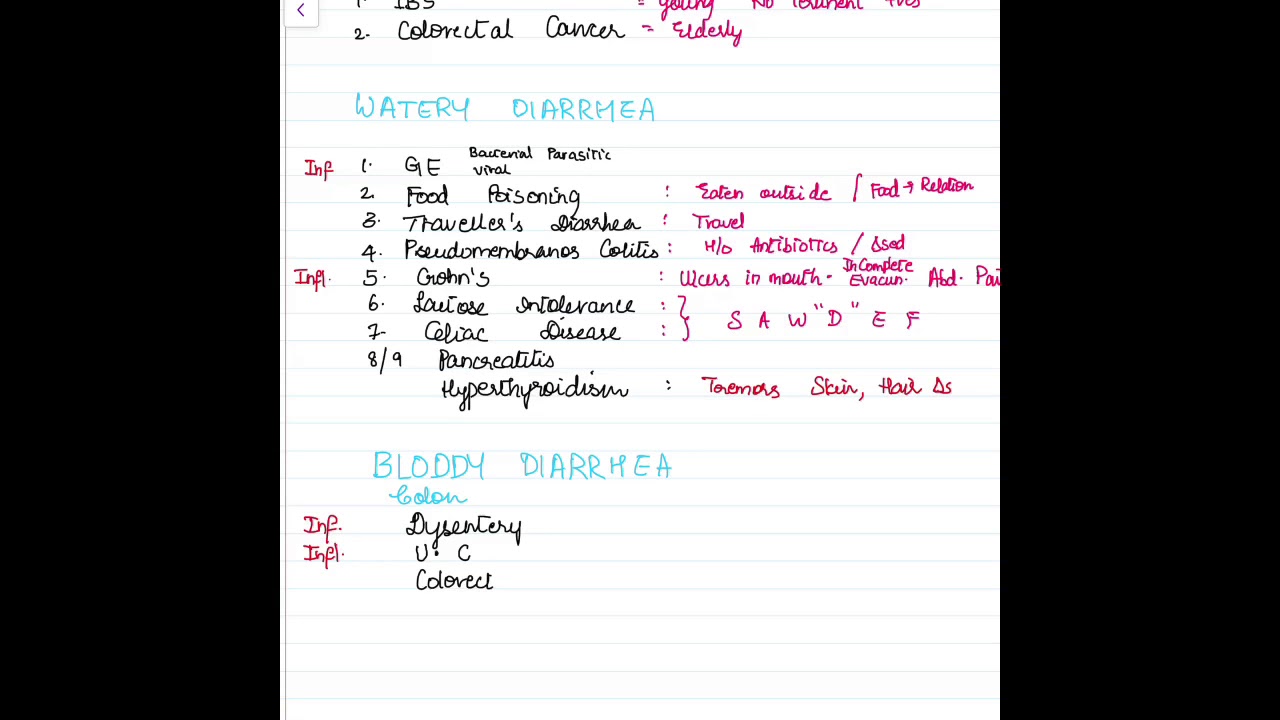 1. IBS = Young No
2. Colorectal Cancer = Elderly
WATERY DIARRHEA
Inf 1. GE Bacterial Parasitic
viral
2. Food Poisoning : Eaten outside / Food → Relation
3. Traveller's Diarrhea : Travel
4. Pseudomembranos Colitis : H/o Antibiotics /
Infl. 5. Crohn's : Ulcers in mouth - InComplete Evacun. Abd. Pai
6. Lactose Intolerance :
7. Celiac Disease : } S A W "D" E F
8/9 Pancreatitis
Hyperthyroidism : Tremors Skin, Hair Δs
BLODDY DIARRHEA
Colon
Inf. Dysentery
Infl. U. C
Colorect